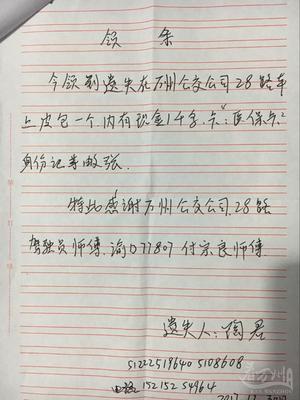 领 条
今领到遗失在万州公交公司28路车
上皮包一个.内有现金1千多.卡:医保卡
身份证等数张.
特此感谢万州公交公司.28路
驾驶员师傅.渝D77807 付宗良师傅
遗失人:陶君
电话 15215254964